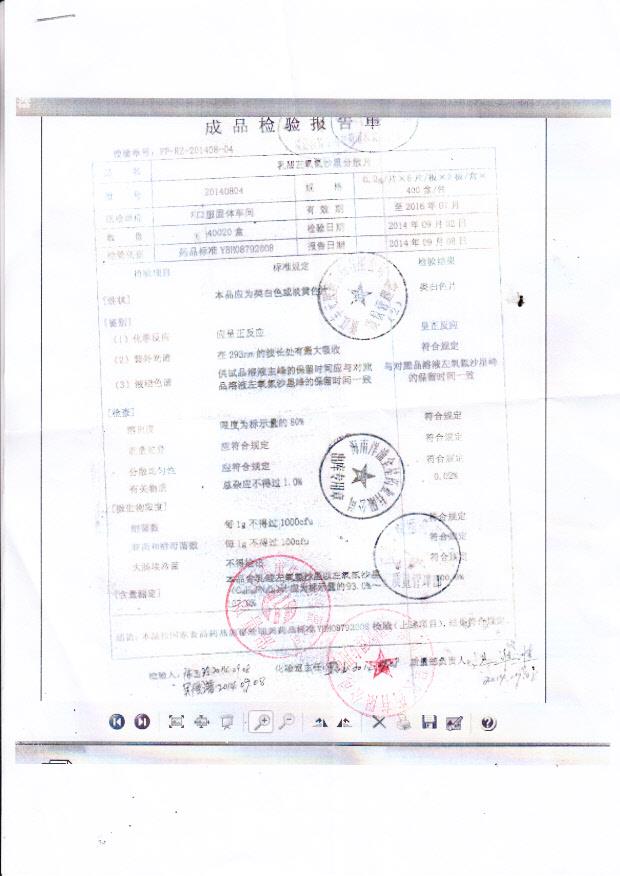 成品检验报告单
检验单号：FP-RZ-201408-04
品 名 乳酸左氧氟沙星分散片
批 号 20140804 规 格 0.2g/片×6片/板×2板/盒×400盒/件
送检部门 口服固体车间 有效期 至2016年07月
数 量 40020盒 检验日期 2014年09月02日
检验依据 药品标准YBH08792008 报告日期 2014年09月08日
检验项目 标准规定 检验结果
[性状] 本品应为类白色或淡黄色片 类白色片
[鉴别]
(1) 化学反应 应呈正反应 呈正反应
(2) 紫外光谱 在293nm的波长处有最大吸收 符合规定
(3) 液相色谱 供试品溶液主峰的保留时间应与对照品溶液左氧氟沙星峰的保留时间一致 与对照品溶液左氧氟沙星峰的保留时间一致
[检查]
溶出度 限度为标示量的80% 符合规定
重量差异 应符合规定 符合规定
分散均匀性 应符合规定 符合规定
有关物质 总杂应不得过1.0% 0.02%
[微生物限度]
细菌数 每1g不得过1000cfu 符合规定
霉菌和酵母菌数 每1g不得过100cfu 符合规定
大肠埃希菌 不得检出 符合规定
[含量测定] 本品含乳酸左氧氟沙星以左氧氟沙星 应为标示量的93.0%
结论：本品按国家食品药品监督管理局药品标准YBH08792008检验（上述项目），结果符合规定。
检验人： 化验室主任： 质量部负责人：
2014.09.08